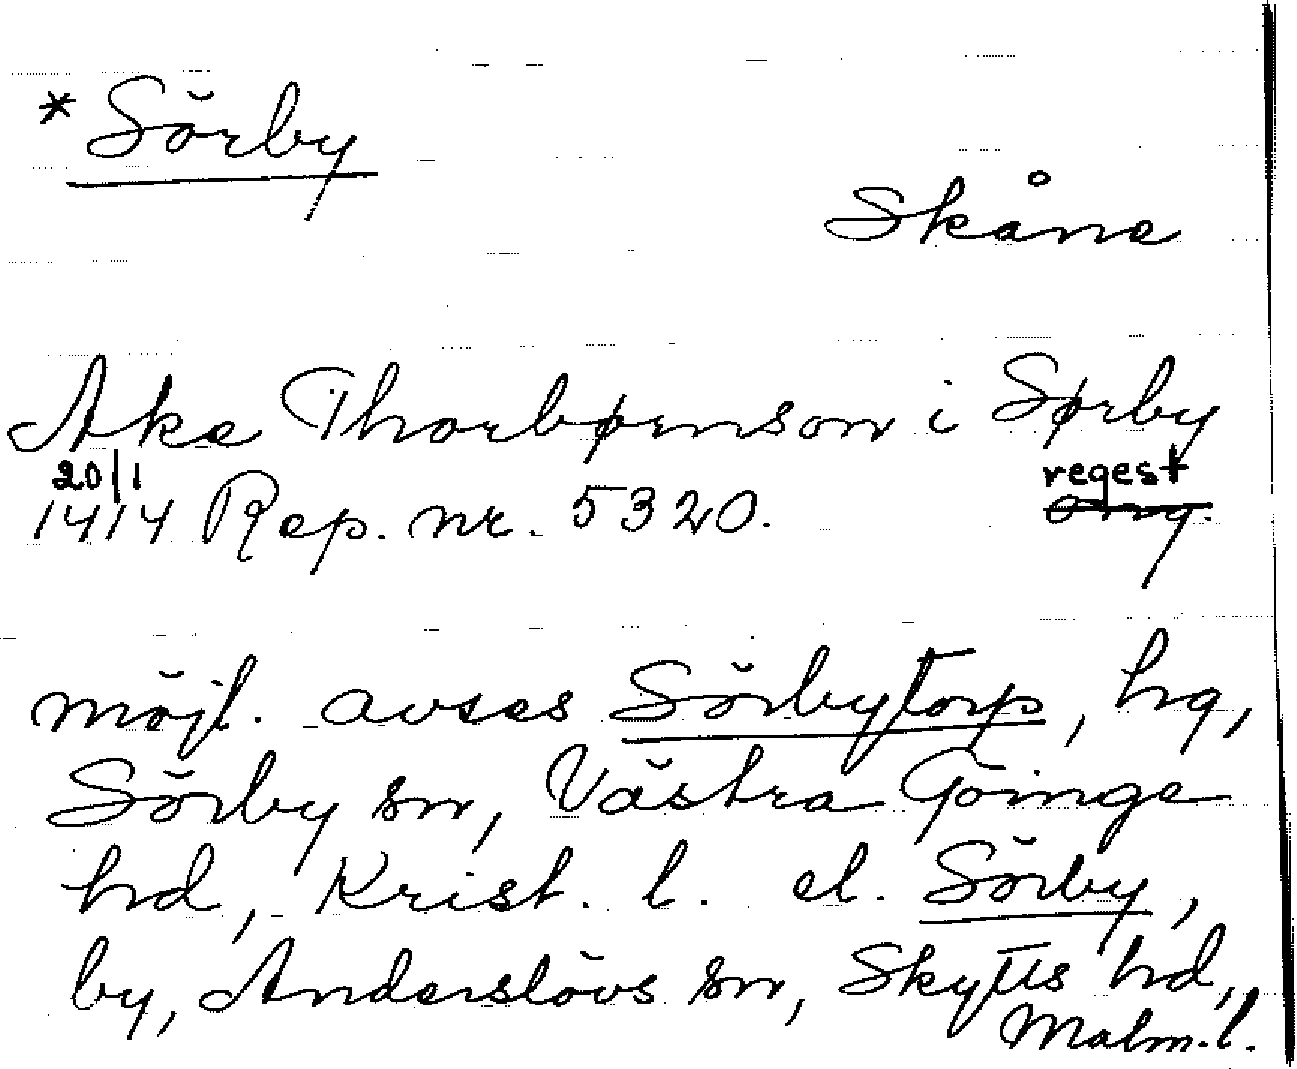 *Sörby
Skåne
Ake Thorbørnson i Sørby
20/1 regest
1414 Rep. nr. 5320. Orig.
möjl. avses Sörbytorp, hg,
Sörby sn, Västra Göinge
hd, Krist. l. el. Sörby,
by, Anderslövs sn, Skytts hd,
Malm. l.